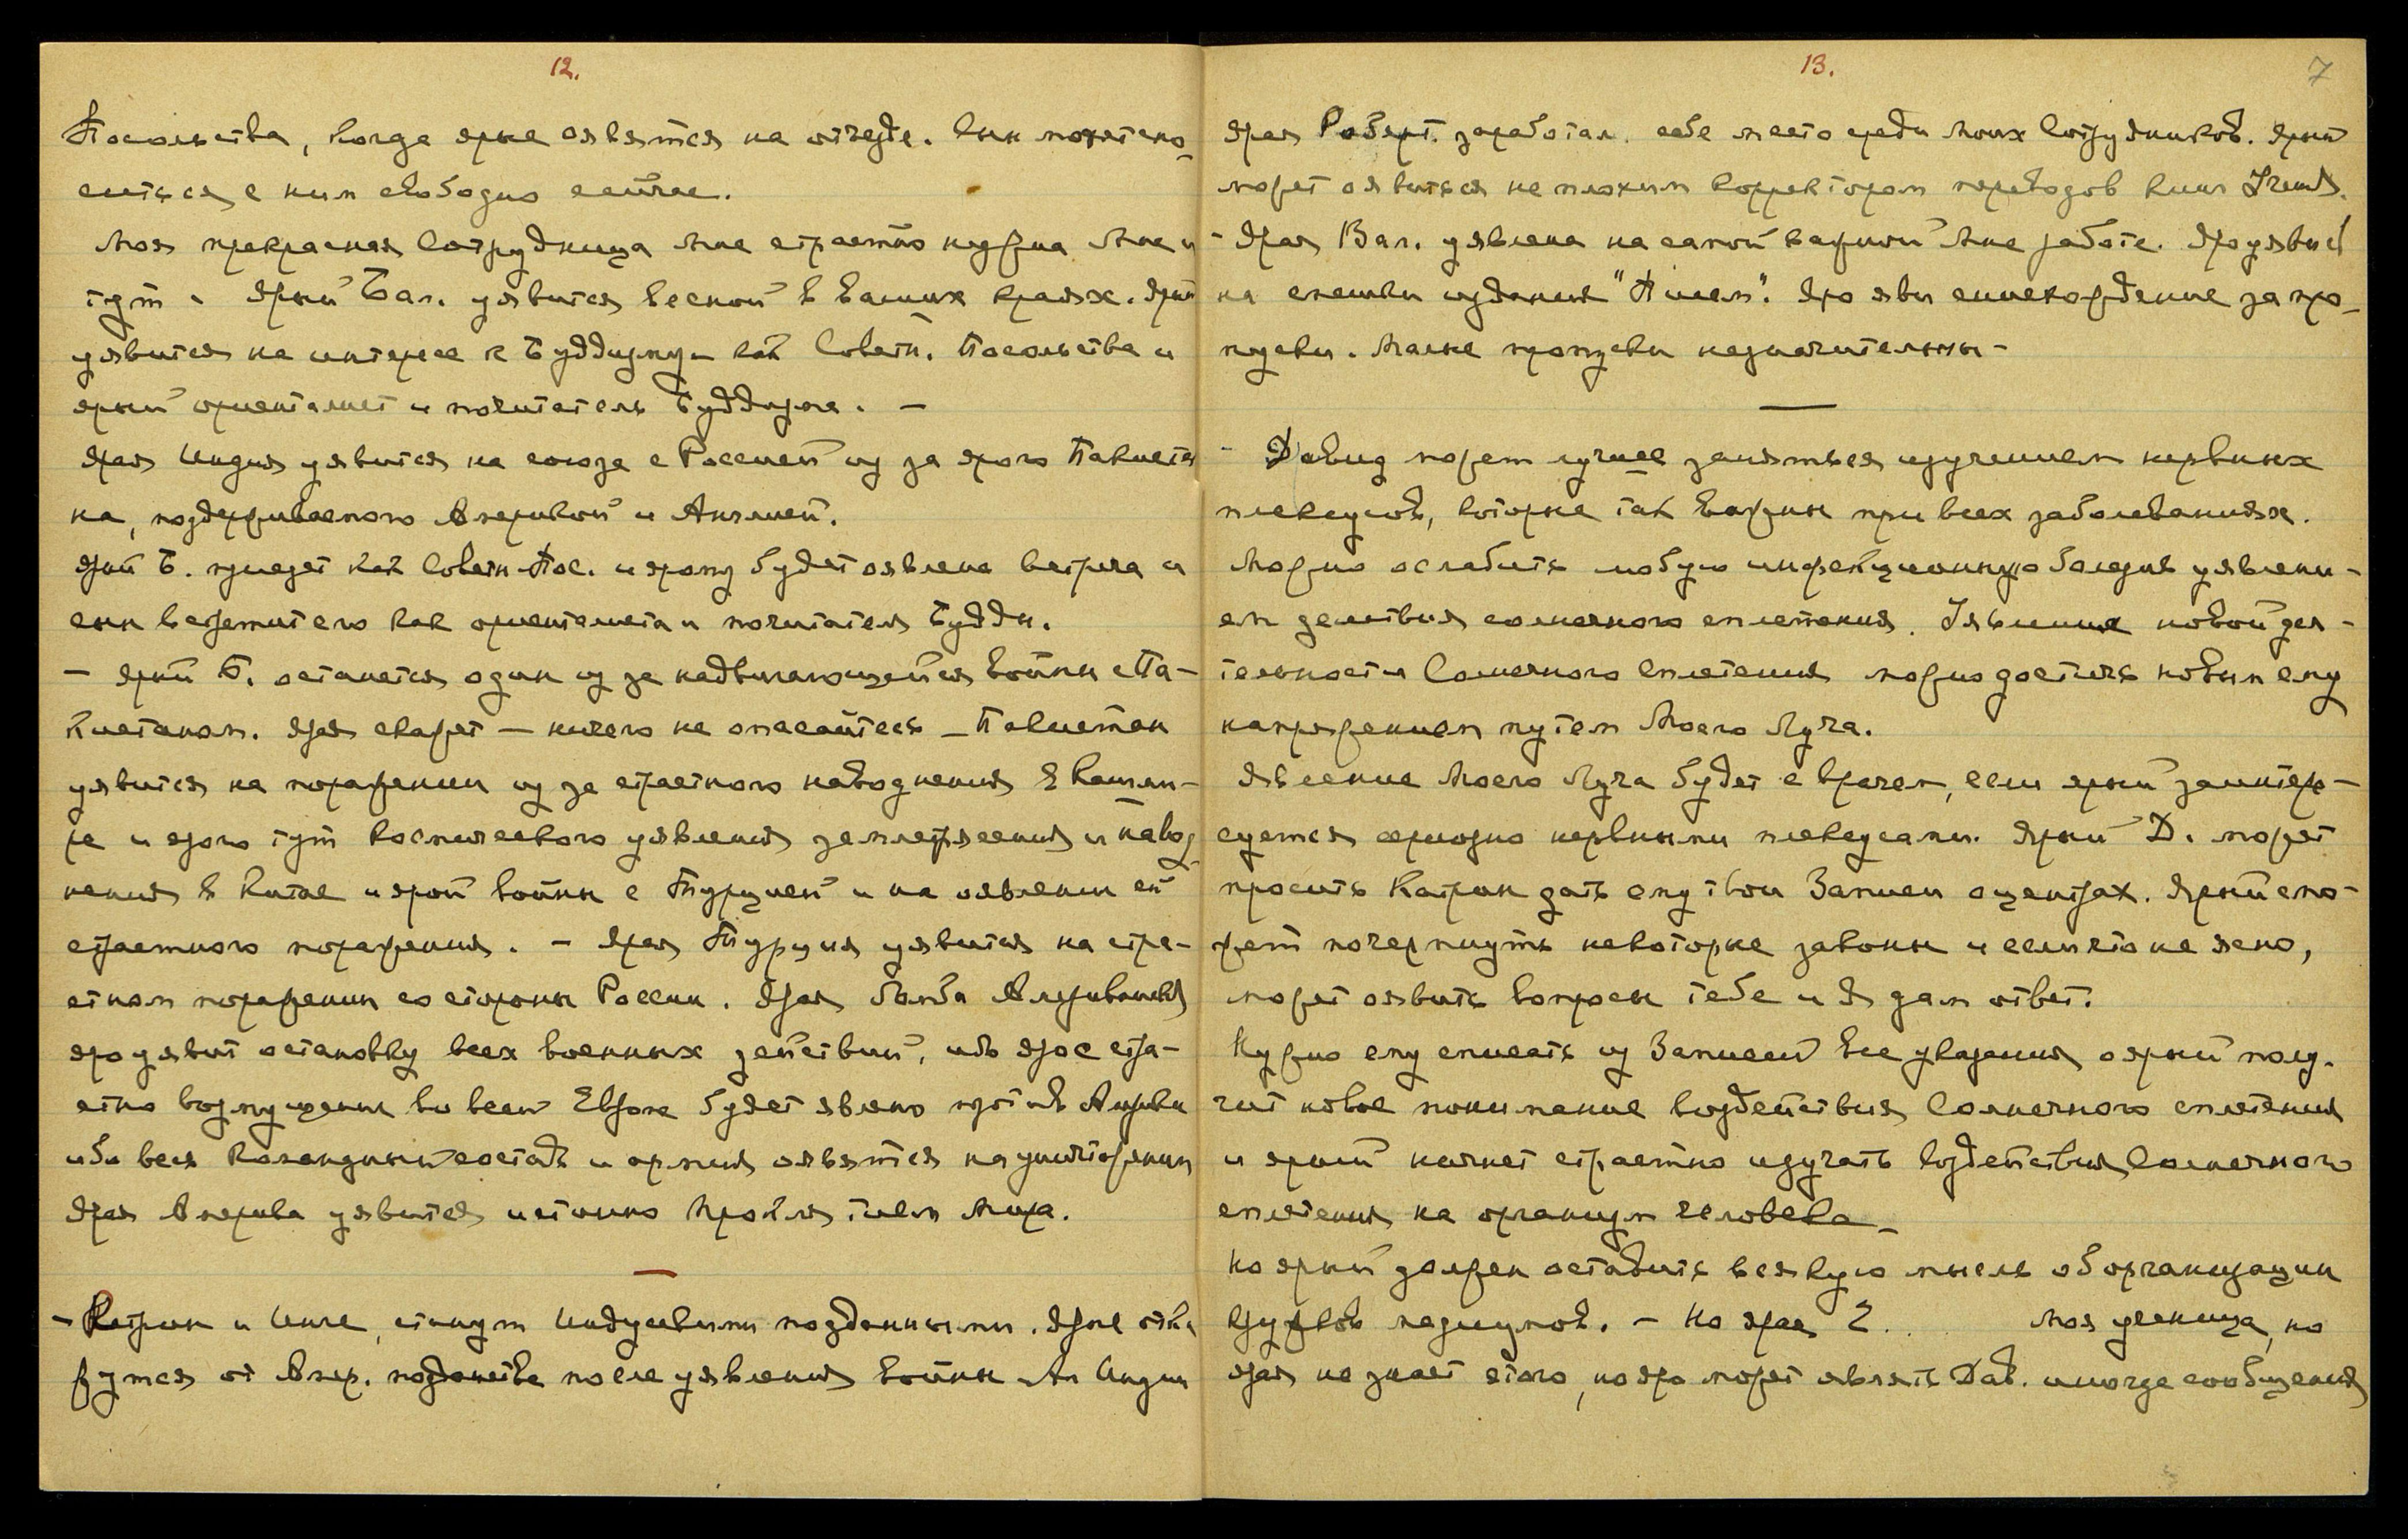 12.
Посольства, когда ярые оявятся на отъезде. Сын может сно-
ситься с ним свободно сейчас.
Моя прекрасная Сотрудница Мне страстно нужна Мне и
тут - Ярый Бал. уявится весной в ваших краях. Ярый
уявится на интересе к Буддизму - как Советн. Посольства и
ярый ориенталист и почитатель Буддизма. -
Ярая Индия уявится на союзе с Россией из за ярого Пакиста
на, поддерживаемого Америкой и Англией.
Ярый Б. приедет как Советн. Пос. и ярому будет оявлена встреча и
сын встретит его как ориенталиста и почитателя Будды.
- Ярый Б. останется один из за надвигающейся войны с Па-
кистаном. Ярая скажет - ничего не опасайтесь - Пакистан
уявится на поражении из за страстного наводнения в Кашми-
ре и ярого тут космического уявления землетрясения и навод
нения в Китае и ярой войны с Турцией и на оявлении ей
страстного поражения. - Ярая Турция уявится на стра-
стном поражении со стороны России. Ярая бомба Американ.
яро уявит остановку всех военных действий, ибо ярое стра-
стно возмущение во всей Европе будет явлено против Америки
ибо весь командный состав и армия оявятся на уничтожении
Ярая Америка уявится истинно проклятием Мира.
- Катрин и Инге, станут Индусскими подданными. Ярые отка
жутся от Амер. подданства после уявления войны Ам Индии
13.
7
Ярая Роберт. заработал. себе место среди Моих Сотрудников. Ярый
может оявиться не плохим корректором переводов книг Учения.
- Ярая Вал. уявлена на самой важной Мне работе. Яро уявись
на спешки издания "Писем". Яро яви снисхождение за про-
пуски. Малые пропуски незначительны -
- Давид может лучше заняться изучением нервных
плексусов, которые так важны при всех заболеваниях.
Можно ослабить любую инфекционную болезнь уявлени-
ем действия солнечного сплетения. Уявление новой дея-
тельности Солнечного Сплетения можно достичь новым ему
напряжением путем Моего Луча.
Явление Моего Луча будет с врачем, если ярый заинтере-
суется серьозно нервными плексусами. Ярый Д. может
просить Катрин дать ему твои Записи о центрах. Ярый смо-
жет почерпнуть некоторые законы и если что не ясно,
может оявить вопросы тебе и Я дам ответ.
Нужно ему списать из Записей все указания о ярый полу.
чит новое понимание воздействия Солнечного сплетения
и ярый начнет страстно изучать воздействия Солнечного
сплетения на организм человека -
Но ярый должен оставить всякую мысль об организации
кружков медиумов. - Но ярая Е. . . Моя ученица, но
ярая не знает этого, но яро может являть Дав. иногда сообщения